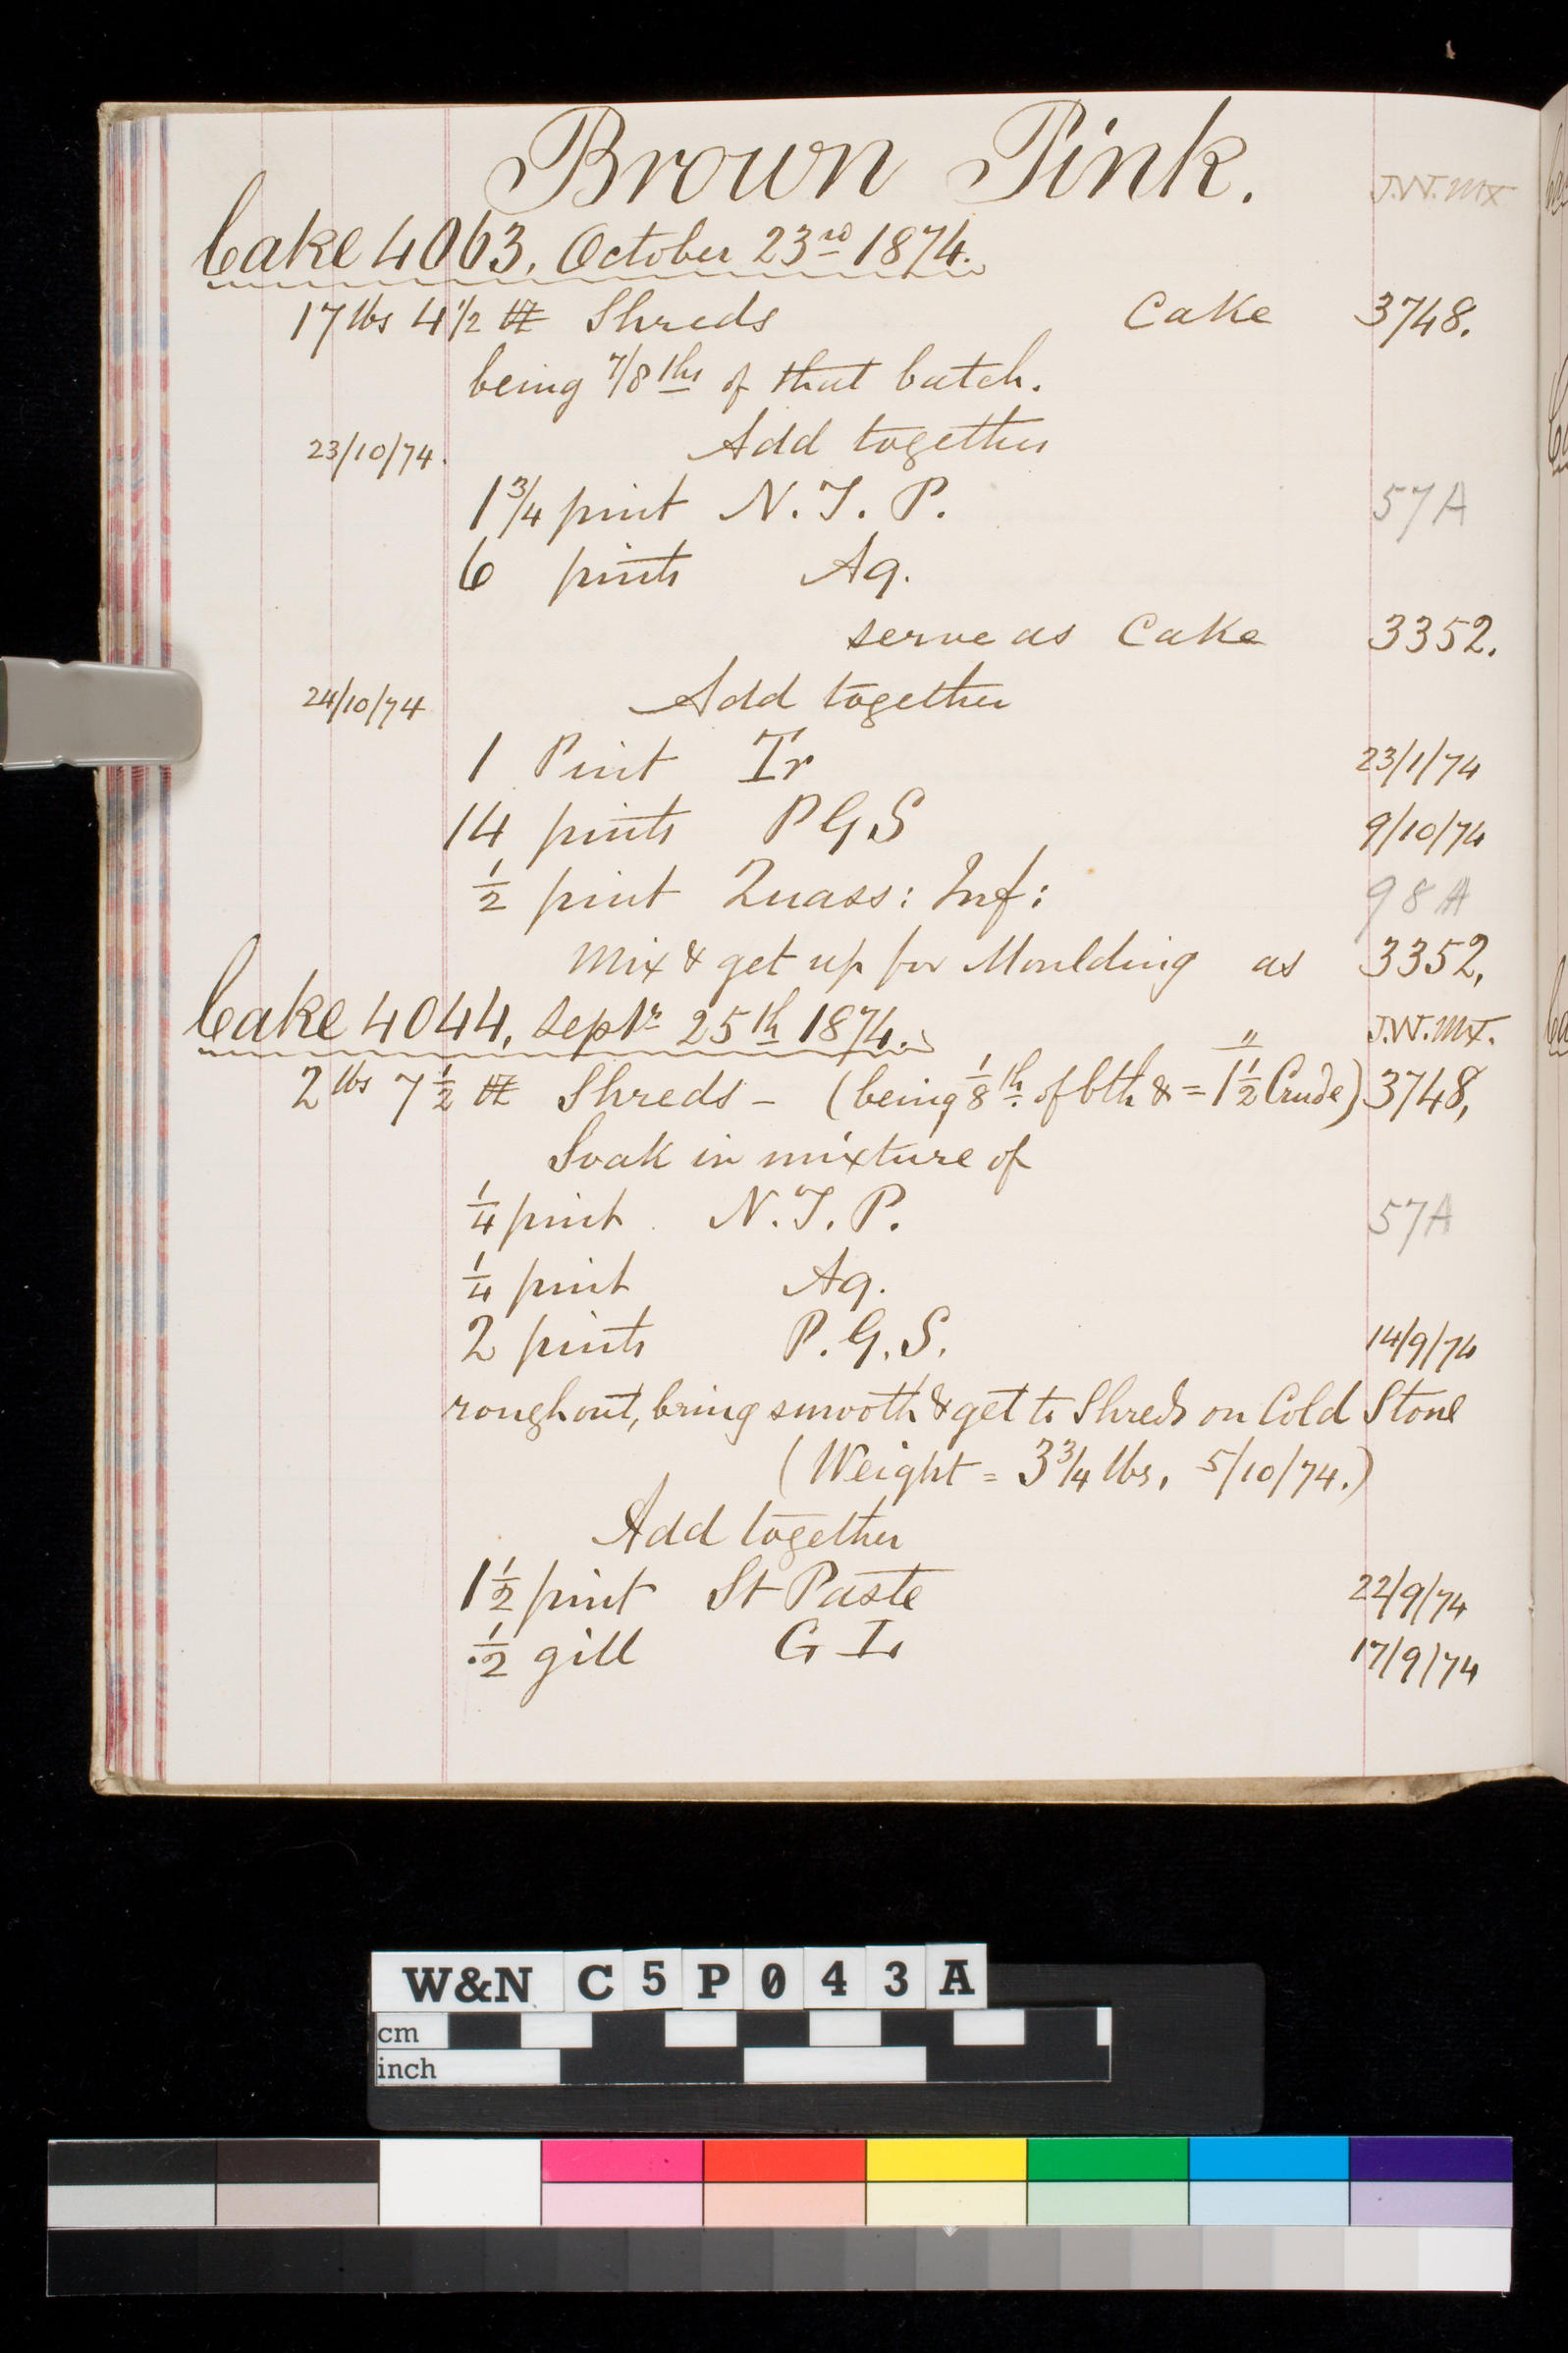 Brown Pink.
J.W. Mx
Cake 4063. October 23rd 1874.
17 lbs 4 1/2 Shreds Cake 3748.
being 7/8ths of that batch.
23/10/74. Add together
1 3/4 pint N.T.P. 57A
6 pints Aq.
serve as Cake 3352.
24/10/74 Add together
1 Pint Tr 23/1/74
14 pints PGS 9/10/74
1/2 pint Quass: Inf: 98A
Mix & get up for Moulding as 3352,
Cake 4044, Septr 25th 1874. " J.W. Mx.
2 lbs 7 1/2 Shreds – (being 1/8th of bth & = 1 1/2 Crude) 3748,
Soak in mixture of
1/4 pint N.T.P. 57A
1/4 pint Aq.
2 pints P.G.S. 14/9/74
rough out, bring smooth & get to Shreds on Cold Stone
(Weight = 3 3/4 lbs, 5/10/74.)
Add together
1 1/2 pint St Paste 22/9/74
1/2 gill G I. 17/9/74
W&N C5P043A
cm
inch